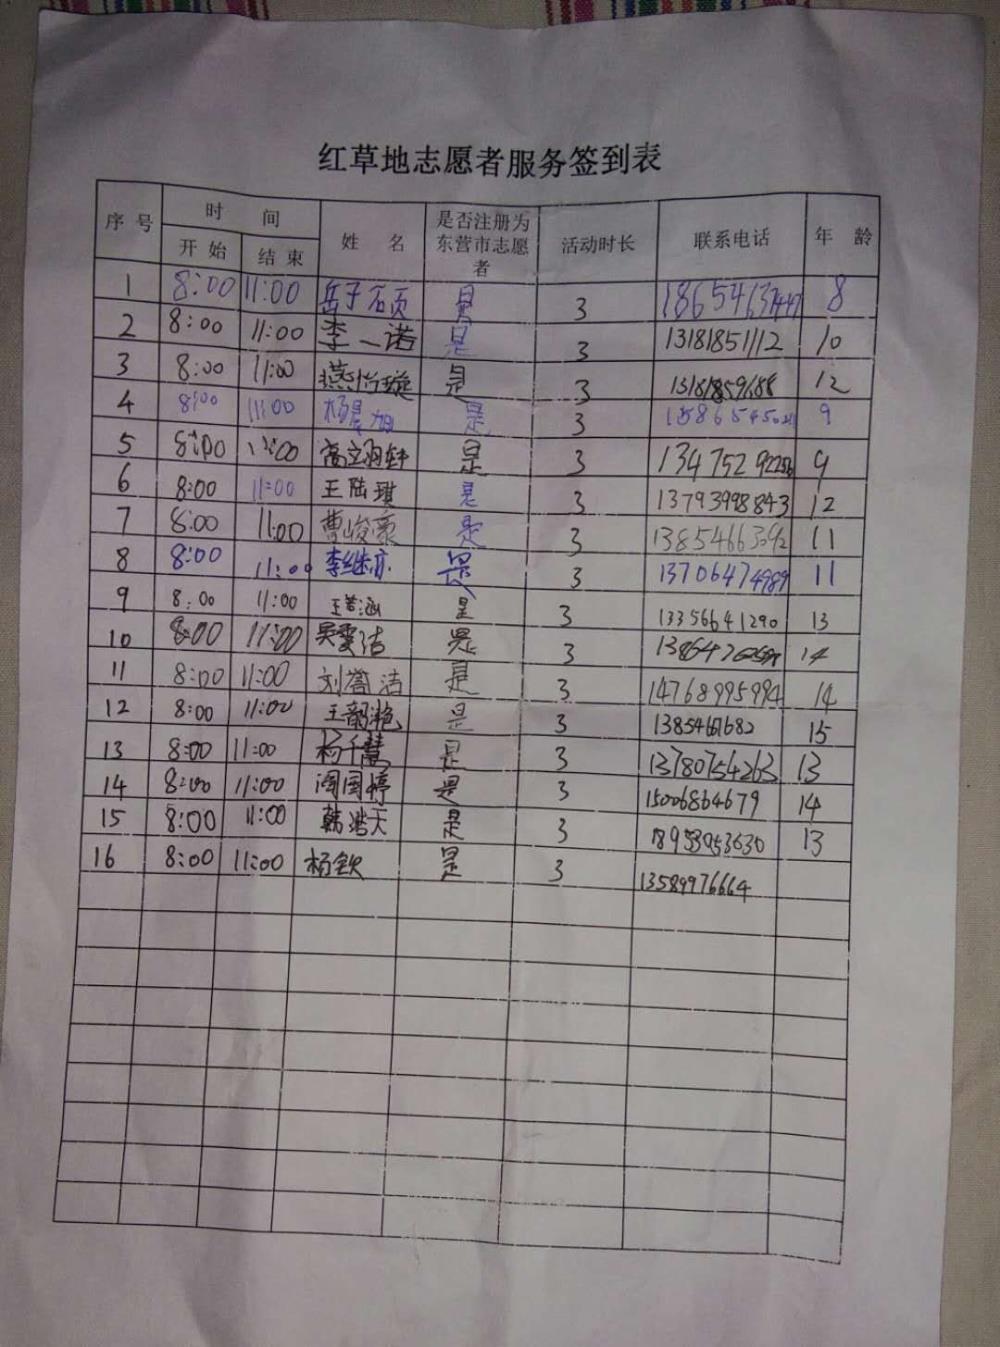 红草地志愿者服务签到表
序号 时间 姓名 是否注册为东营市志愿者 活动时长 联系电话 年龄
开始 结束
1 8:00 11:00 岳子 是 3 8
2 8:00 11:00 李一诺 是 3 13181851112 10
3 8:00 11:00 燕 璇 是 3 13181859688 12
4 8:00 11:00 杨晨旭 是 3 9
5 8:00 11:00 高 轩 是 3 9
6 8:00 11:00 王陆琪 是 3 13793998843 12
7 8:00 11:00 曹俊豪 是 3 11
8 8:00 11:00 李继亦 是 3 13706474989 11
9 8:00 11:00 王若涵 是 3 13356641290 13
10 8:00 11:00 吴雯洁 是 3 14
11 8:00 11:00 刘 洁 是 3 14768995994 14
12 8:00 11:00 王韶艳 是 3 15
13 8:00 11:00 杨千慧 是 3 13780754263 13
14 8:00 11:00 闫国婷 是 3 15006864679 14
15 8:00 11:00 韩浩天 是 3 18953053630 13
16 8:00 11:00 杨钦 是 3 13589976664